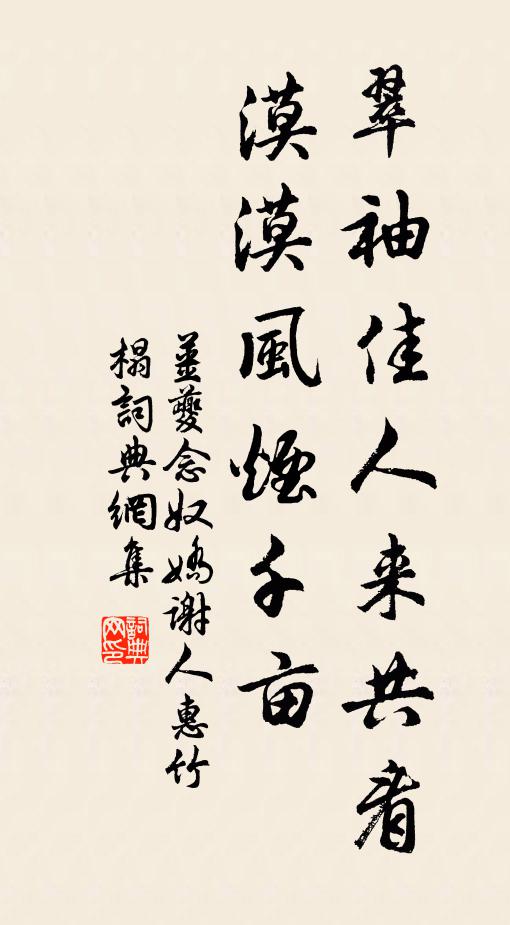 翠袖佳人来共看
漠漠風煙千亩
薑夔念奴嬌謝人惠竹
榻詞典網集
詞典网印